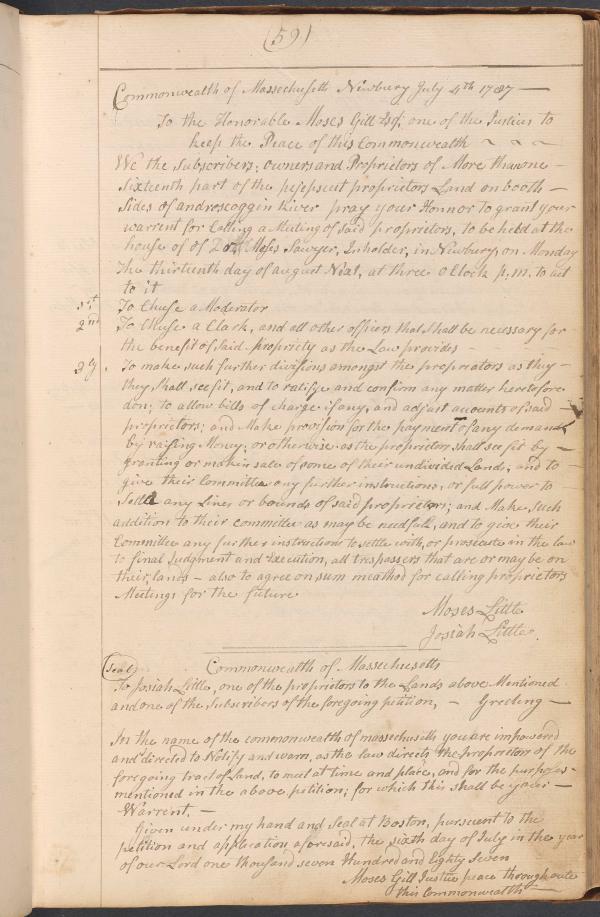 (59)
Commonwealth of Massechusetts Newbury July 4th 1787 —
To the Honorable Moses Gill Esqr, one of the Justius to
keep the Peace of this Commonwealth ~ ~ ~
We the Subscribers; owners and Proprietors of More than one —
Sixteenth part of the pejepscut proprietors Land on booth —
Sides of androscoggin River pray your Honnor to grant your
warrent for Calling a Meeting of said proprietors, to be held at the
house of of Moses Sawyer, Inholder, in Newbury, on Monday
The thirteenth day of august Next, at three o Clock p, m. to act
to it
1st To Chuse a Moderator
2nd To Chuse a Clark, and all other officers that shall be necessary for
the benefit of said propriety as the Law provides —
3ly. To make such further divisions amongst the propreators as they —
they shall see fit, and to ratifye and confirm any matter heretofore
don; to allow bills of charge if any, and adjust accounts of said —
proprietors; and Make provision for the payment of any demand
by raising Money, or otherwise as the proprietors shall see fit by —
granting or makein sale of some of their undivided Land, and to —
give their Committee any further instructions, or full power to
Settle any Lines or bounds of said proprietors; and Make Such
addition to their committee as may be needfull, and to give their
Committee any further instruction to settle with, or prosicute in the law
to final Judgment and Execution, all trespassers that are or may be on
their, lands — also to agree on sum meathod for calling proprietors
Meetings for the future
Moses Little
Josiah Little.
(Seal) Commonwealth of Massechusetts
To Josiah Little, one of the proprietors to the Lands above Mentioned
and one of the Subscribers of the foregoing petition, — Greeding —
In the name of the commonwealth of massechusetts you are impowered
and directed to Notify and warn, as the law directs, the proprietors of the
foregoing tract of Land, to meet at time and place, and for the purposes —
mentioned in the above petition; for which this shall be your —
Warrent. —
Given under my hand and Seal at Boston, pursuent to the
petition and application aforesaid, the sixth day of July in the year
of our Lord one thousand seven Hundred and Eighty Seven
Moses Gill Justice peace through oute
this Commonwealth —